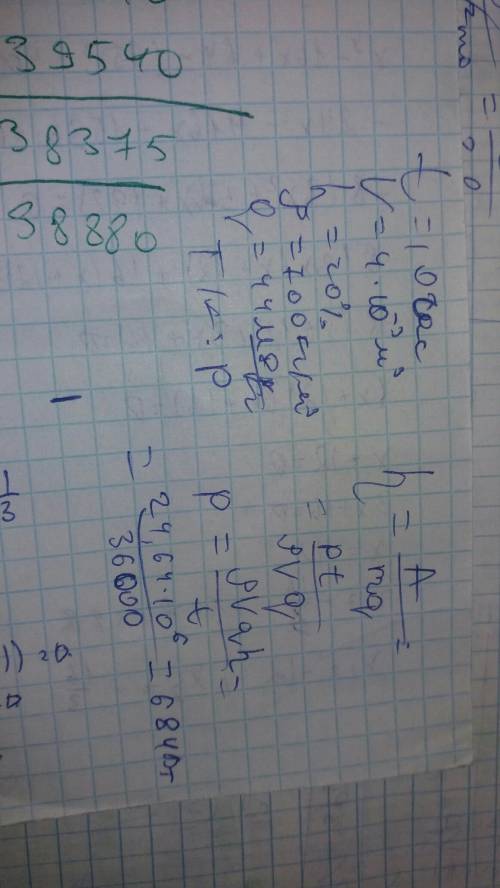 39540
38375
38880
t = 10 час
V = 4·10⁻³ м³
η = 20%
ρ = 700 кг/м³
q = 44 МДж/кг
T/к: p
η = A/mq =
= pt/ρVq
p = ρVqη/t =
= 24,64·10⁶/36000 = 684 Вт
1/3
1) = 0